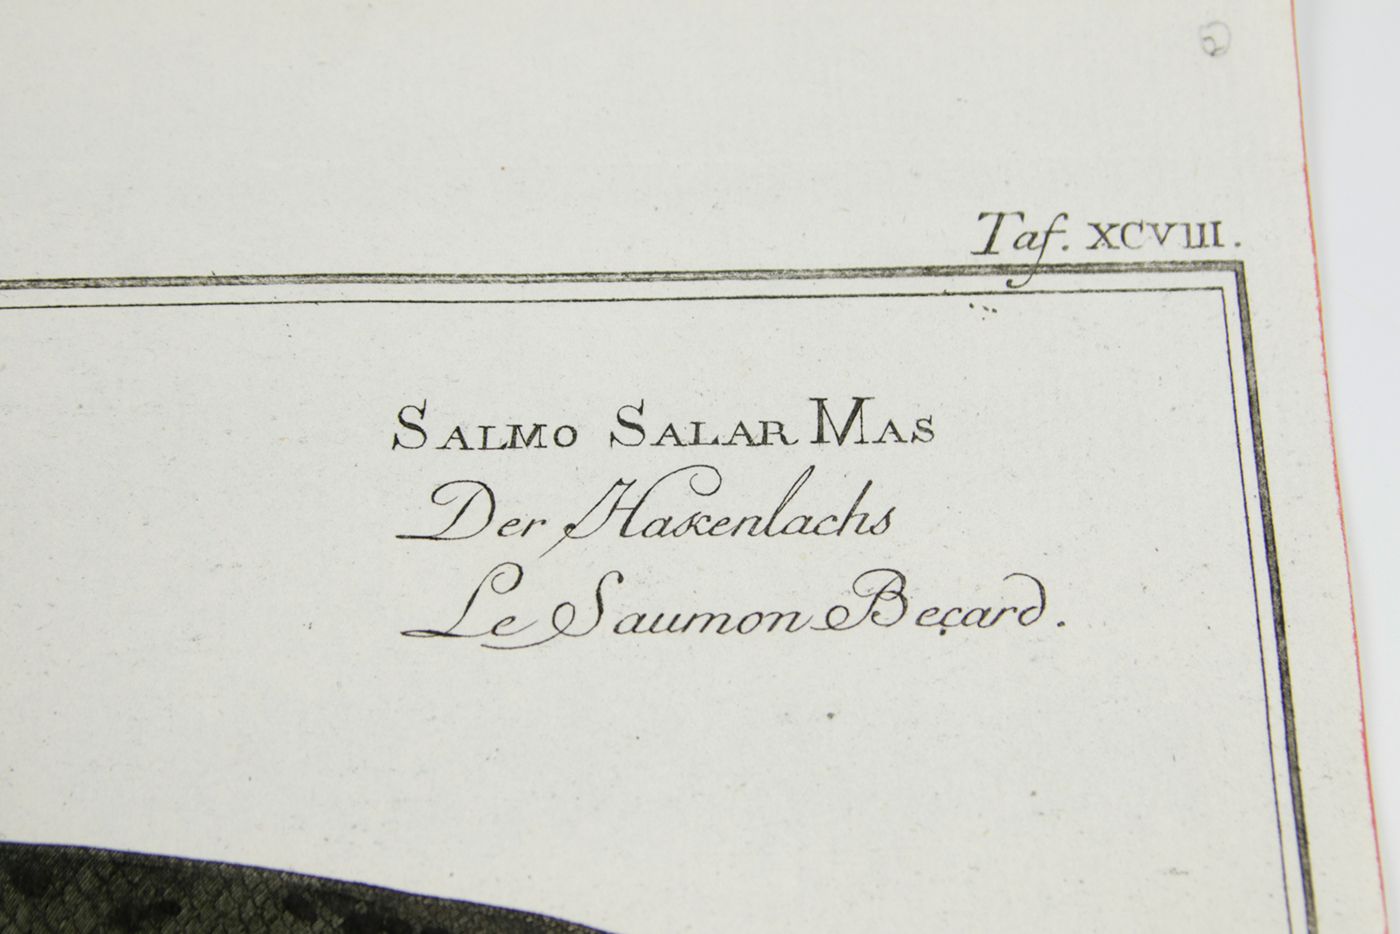 2
Taf. XCVIII.
SALMO SALAR MAS
Der Hakenlachs
Le Saumon Beçard.